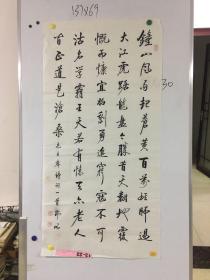 137×69
30
鍾山风雨起蒼黄百万雄师過
大江虎踞龍盘今勝昔天翻地覆
慨而慷宜將剩勇追窮寇不可
沽名學霸王天若有情天亦老人
间正道是滄桑 毛主席诗词一首